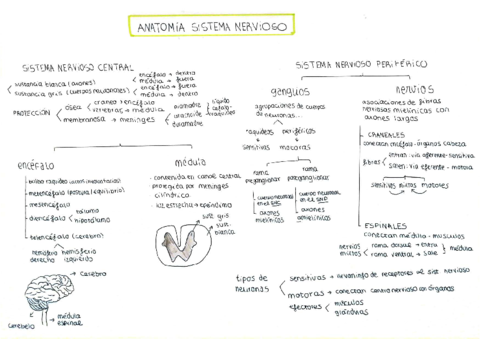 ANATOMÍA SISTEMA NERVIOSO
SISTEMA NERVIOSO CENTRAL
sustancia blanca (axones) encéfalo → dentro
médula → fuera
sustancia gris (cuerpos neuronales) encéfalo → fuera
médula → dentro
PROTECCIÓN ósea craneo → encéfalo
vertebras → médula
membranosa → meninges
aracnoide
duramadre
líquido
encéfalo
mesencéfalo
diencéfalo tálamo
hipotálamo
telencéfalo (cerebro)
hemisferio
derecho izquierdo
cerebro
médula
espinal
cerebelo
médula
contenida en canal central
protegida por meninges
cilíndrica
sust. gris
sust. blanca
SISTEMA NERVIOSO PERIFÉRICO
ganglios
agrupaciones de cuerpos
de neuronas...
raquídeos periféricos
sensitivos motoras
rama
preganglionar
rama
postganglionar
cuerpo neuronal
en el
axones
mielínicos
cuerpo neuronal
en el SNP
axones
amielínicos
nervios
asociaciones de fibras
nerviosas mielínicas con
axones largos
CRANEALES
conectan encéfalo - órganos cabeza
fibras entran vía aferente - sensitiva
salen vía eferente - motora
sensitivos mixtos motores
ESPINALES
conectan médula - musculos
nervios
mixtos
rama dorsal → entra
rama ventral → sale
médula
tipos de
neuronas
sensitivas → llevan info de receptores al sist nervioso
motoras → conectan centro nervioso con órganos
efectores músculos
glándulas